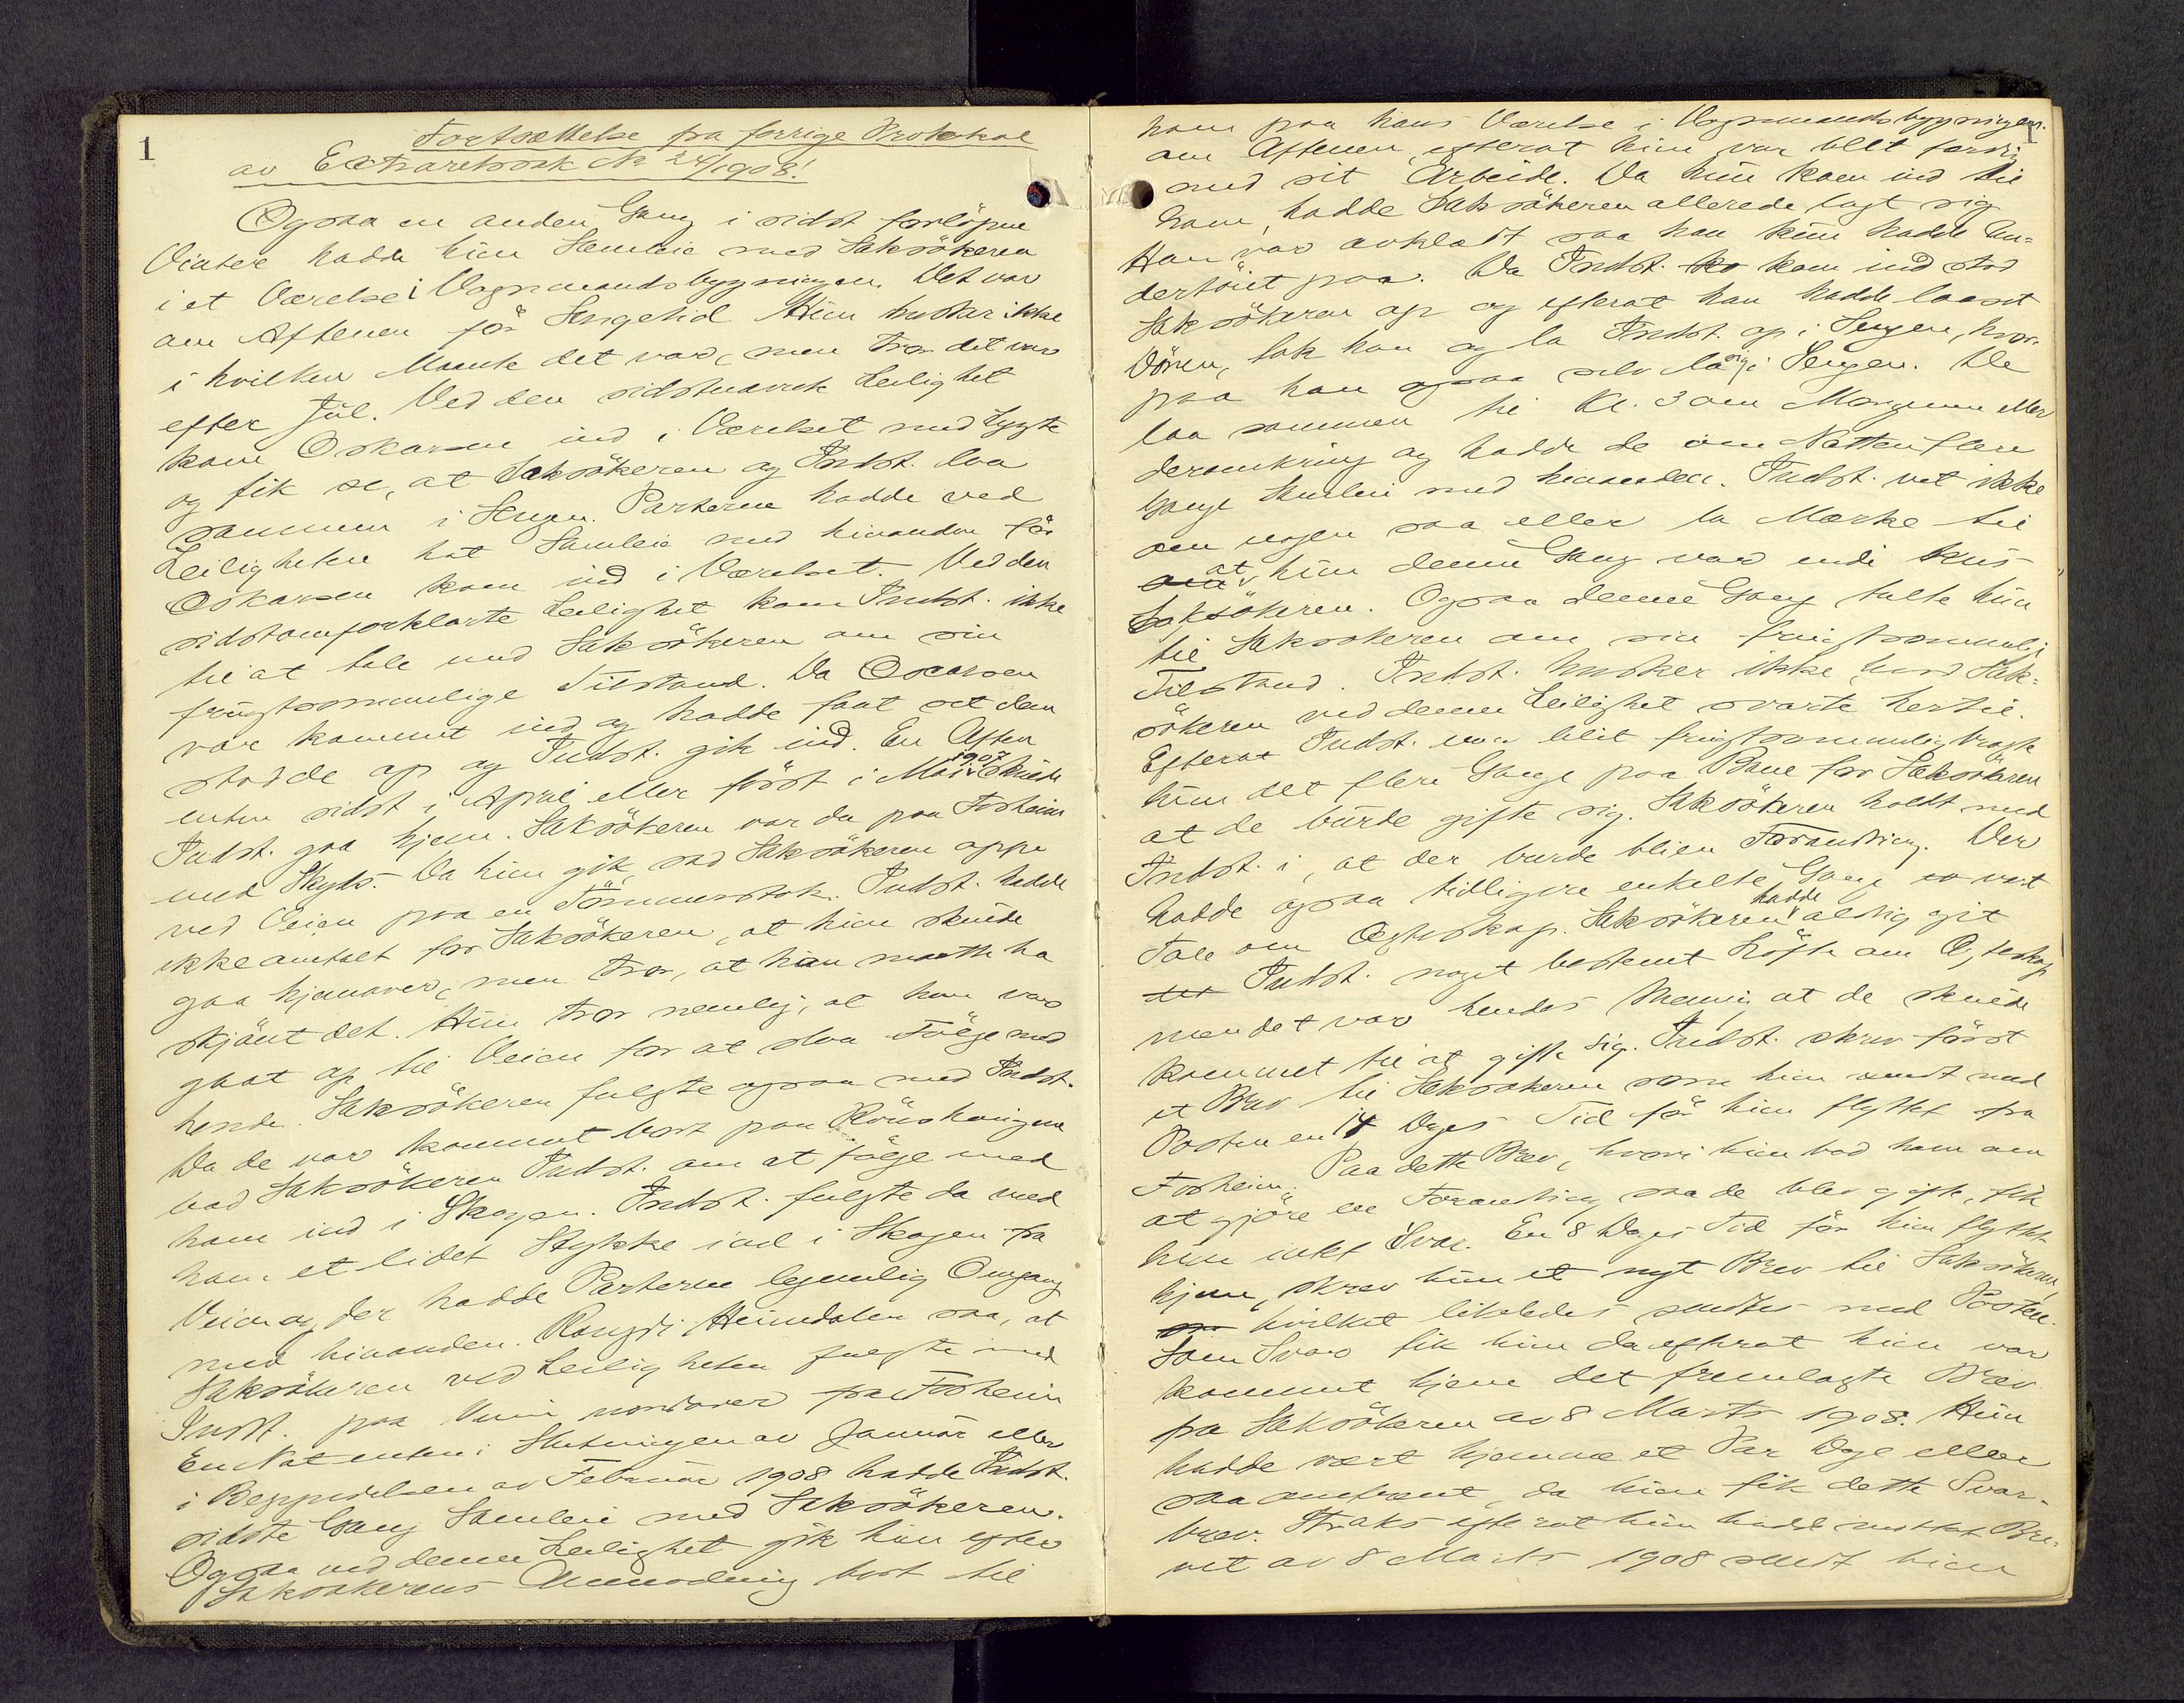 1
Fortsættelse fra forrige Protokol
av Extraretssak No 24/1908!
Ogsaa en anden Gang i sidst forløpne
Vinter hadde hun Samleie med Saksökeren
i et Værelse i Vognmandsbygningen. Det var
om Aftenen för Sengetid. Hun husker ikke
i hvilken Maaned det var, men tror det var
efter Jul. Ved den sidstnævnte Leilighet
kom Oskarsen ind i Værelset med Lygte
og fik se, at Saksökeren og Indst. laa
sammen i Sengen. Parterne hadde ved
Leiligheten hat Samleie med hinanden för
Oskarsen kom ind i Værelset. Ved den
sidstomforklarte Leilighet kom Indst. ikke
til at tale med Saksökeren om sin
frugtsommelige Tilstand. Da Oscarsen
var kommet ind og hadde faat set dem
stod de op og Indst. gik ind. En Aften
enten sidst i April eller först i Mai 1907 skulde
Indst. gaa hjem. Saksökeren var da paa Fosheim
med Skyds. Da hun gik, sad Saksökeren oppe
ved Veien paa en Tömmerstok. Indst. hadde
ikke omtalt for Saksökeren, at hun skulde
gaa hjemover, men tror, at han maatte ha
skjönt det. Hun tror nemlig, at han var
gaat op til Veien for at slaa Fölge med
hende. Saksökeren fulgte ogsaa med Indst.
Da de var kommet bort paa
bad Saksökeren Indst. om at fölge med
ham ind i Skogen. Indst. fulgte da med
ham et lidet Stykke ind i Skogen fra
Veien og der hadde Parterne legemlig Omgang
med hinanden. Heimdalen saa, at
Saksökeren ved Leiligheten fulgte med
Indst. paa Veien nordover fra Fosheim
En Nat enten i Slutningen av Januar eller
i Begyndelsen av Februar 1908 hadde Indst.
sidste Gang Samleie med Saksökeren.
Ogsaa ved denne Leilighet gik hun efter
Saksökerens Anmodning bort til
1
ham paa hans Værelse i Vognmandsbygningen.
om Aftenen, efterat hun var blit færdig
med sit Arbeide. Da hun kom ind til
ham, hadde Saksökeren allerede lagt sig
Han var avklædt saa han kun hadde Un-
dertöiet paa. Da Indst. ko kom ind stod
Saksökeren op og efterat han hadde laaset
Dören, tok han og la Indst. op i Sengen, hvor-
paa han ogsaa selv la sig i Sengen. De
laa sammen til Kl. 3 om Morgenen eller
deromkring og hadde de om Natten flere
Gange Samleie med hinanden. Indst. vet ikke
om nogen saa eller la Mærke til
at hun denne Gang var inde hos
Saksökeren. Ogsaa denne Gang talte hun
til Saksökeren om sin frugtsommelige
Tilstand. Indst. husker ikke hvad Sak-
sökeren ved denne Leilighet svarte hertil.
Efterat Indst. var blit frugtsommelig bragte
hun det flere Gange paa Bane for Saksökeren
at de burde gifte sig. Saksökeren holdt med
Indst. i, at der burde bli en Forandring. Der
hadde ogsaa tidligere enkelte Gange va vært
Tale om Ægteskap. Saksökeren hadde aldrig git
Indst. noget bestemt Löfte om Ægteskap
men det var hendes Mening at de skulde
kommet til at gifte sig. Indst. skrev först
et Brev til Saksökeren som hun sendt med
Posten en 14 Dages Tid för hun flyttet fra
Fosheim. Paa dette Brev, hvori hun bad ham om
at gjöre en Forandring saa de blev gifte, fik
hun intet Svar. En 8 Dages Tid för hun flyttet
hjem, skrev hun et nyt Brev til Saksökeren,
hvilket likeledes sendtes med Posten.
Som Svar fik hun da efterat hun var
kommet hjem det fremlagte Brev
fra Saksökeren av 8 Marts 1908. Hun
hadde vært hjemme et Par Dage eller
saa omtrent, da hun fik dette Svar-
brev. Straks efterat hun hadde mottat Bre-
vet av 8 Marts 1908 sendt hun